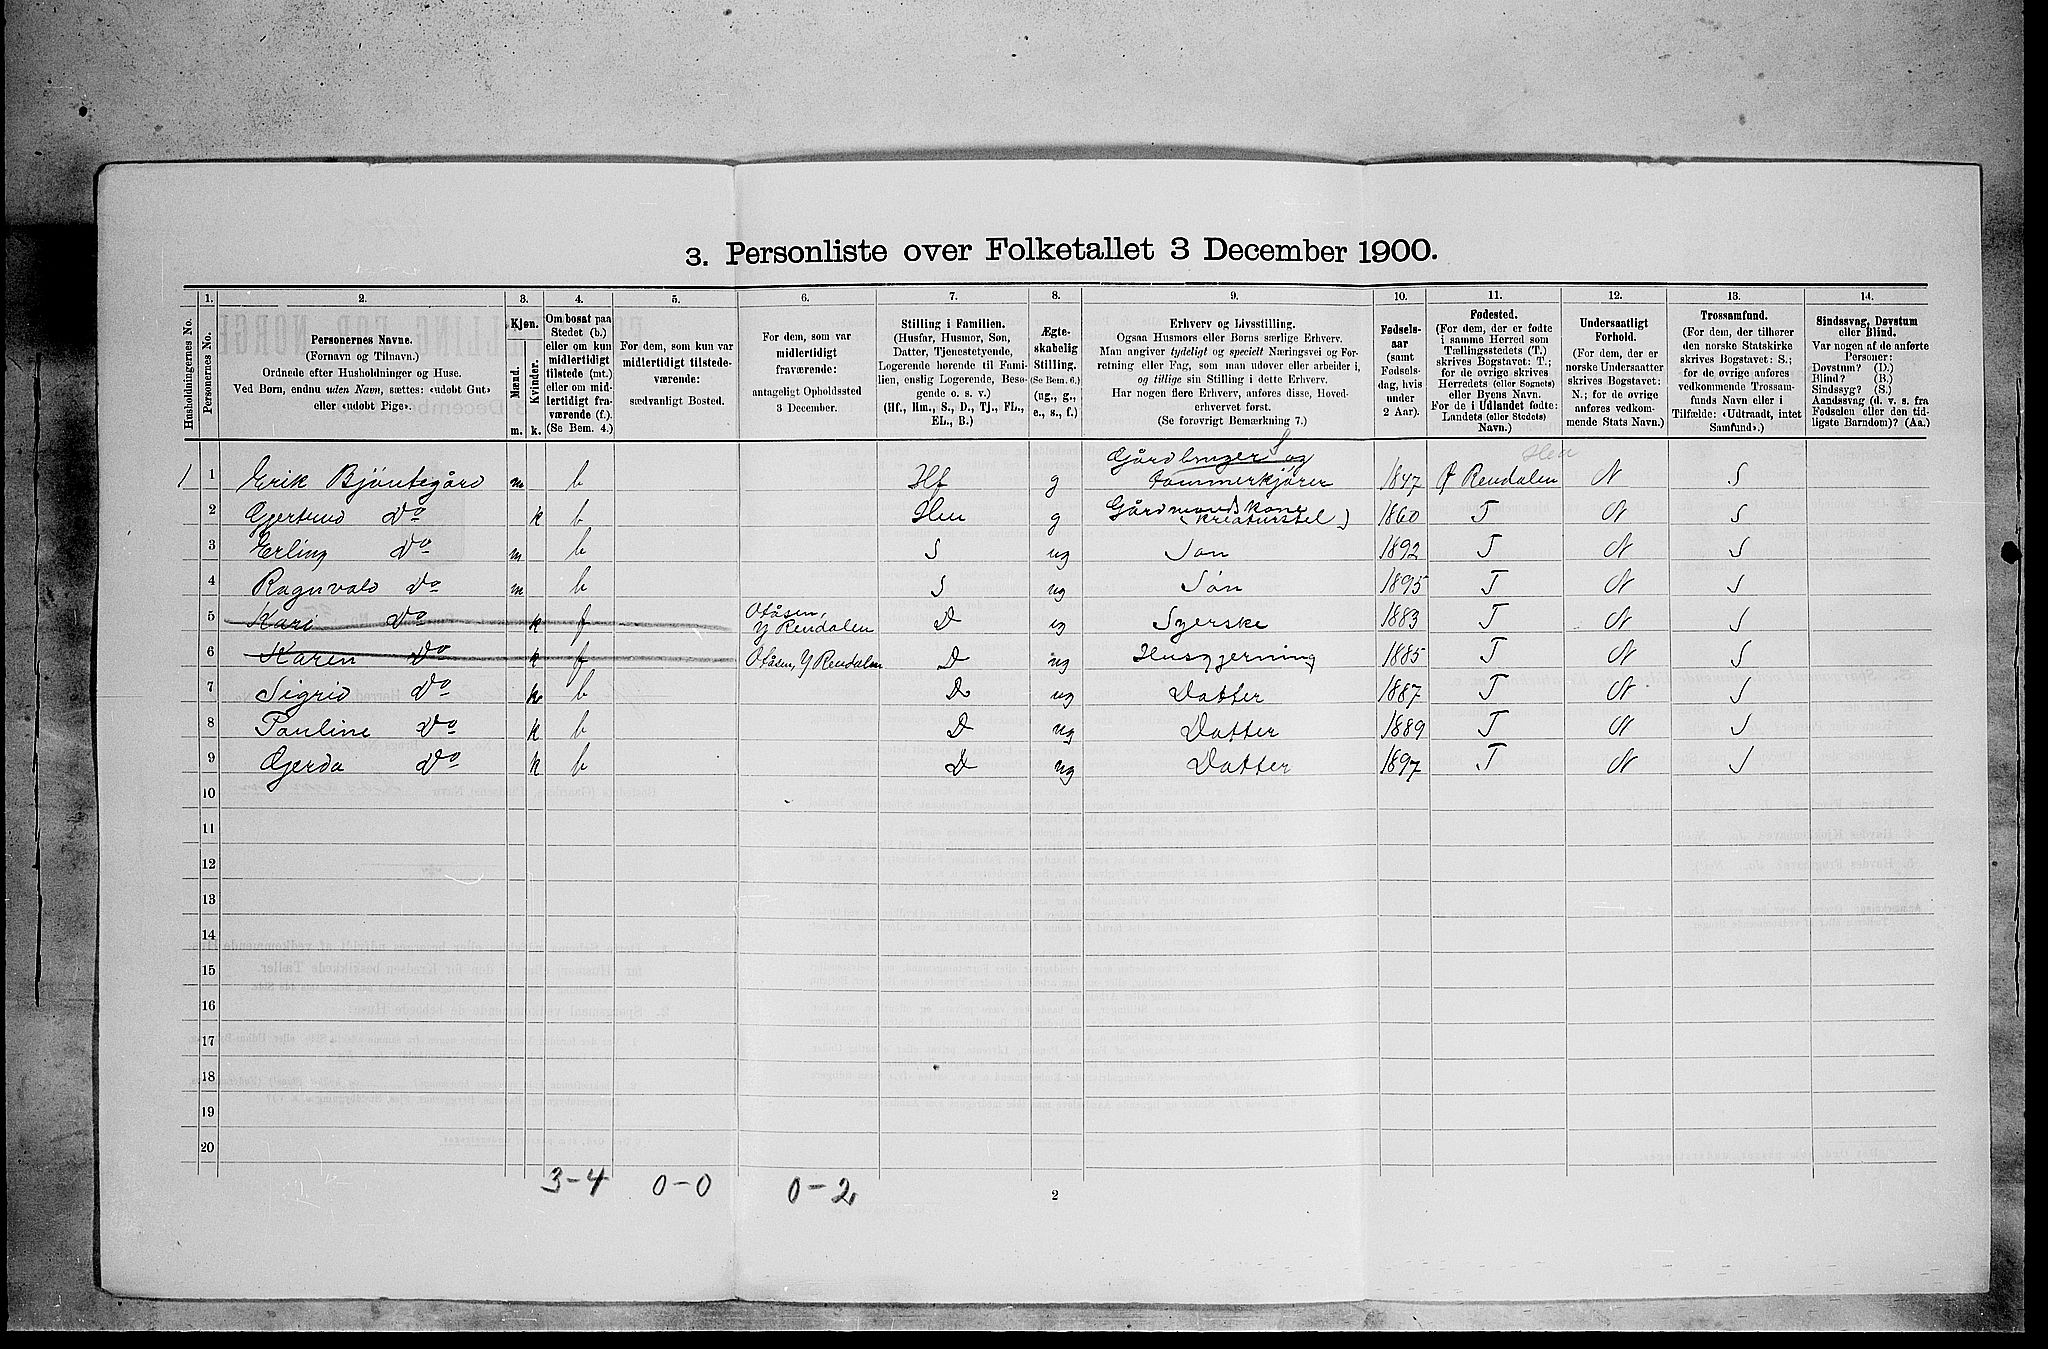 3. Personliste over Folketallet 3 December 1900.
Husholdningernes No.
1.
Personernes No.
2.
Personernes Navne.
(Fornavn og Tilnavn.)
Ordnede efter Husholdninger og Huse.
Ved Børn, endnu uden Navn, sættes: «udøbt Gut»
eller «udøbt Pige».
3.
Kjøn.
Mænd.
Kvinder.
m. k.
4.
Om bosat paa
Stedet (b.)
eller om kun
midlertidigt
tilstede (mt.)
eller om mid-
lertidigt fra-
værende (f.)
(Se Bem. 4.)
5.
For dem, som kun var
midlertidigt tilstede-
værende:
sædvanligt Bosted.
6.
For dem, som var
midlertidigt
fraværende:
antageligt Opholdssted
3 December.
7.
Stilling i Familien.
(Husfar, Husmor, Søn,
Datter, Tjenestetyende,
Logerende hørende til Fami-
lien, enslig Logerende, Besø-
gende o. s. v.)
(Hf., Hm., S., D., Tj., FL.,
EL., B.)
8.
Ægte-
skabelig
Stilling.
(Se Bem. 6.)
(ug., g.,
e., s., f.)
9.
Erhverv og Livsstilling.
Ogsaa Husmors eller Børns særlige Erhverv.
Man angiver tydeligt og specielt Næringsvei og For-
retning eller Fag, som man udøver eller arbeider i,
og tillige sin Stilling i dette Erhverv.
Har nogen flere Erhverv, anføres disse, Hoved-
erhvervet først.
(Se forøvrigt Bemærkning 7.)
10.
Fødsels-
aar
(samt
Fødsels-
dag, hvis
under
2 Aar).
11.
Fødested.
(For dem, der er fødte
i samme Herred som
Tællingsstedets (T.)
skrives Bogstavet: T.;
for de øvrige skrives
Herredets (eller Sognets)
eller Byens Navn.
For de i Udlandet fødte:
Landets (eller Stedets)
Navn.)
12.
Undersaatligt
Forhold.
(For dem, der er
norske Undersaatter
skrives Bogstavet:
N.; for de øvrige
anføres vedkom-
mende Stats Navn.)
13.
Trossamfund.
(For dem, der tilhører
den norske Statskirke
skrives Bogstavet: S.;
for de øvrige anføres
vedkommende Trossam-
funds Navn eller i
Tilfælde: «Udtraadt, intet
Samfund».)
14.
Sindssvag, Døvstum
eller Blind.
Var nogen af de anførte
Personer:
Døvstum? (D.)
Blind? (B.)
Sindssyg? (S.)
Aandssvag (d. v. s. fra
Fødselen eller den tid-
ligste Barndom)? (Aa.)
1 1 Erik Bjöntegård m b Hf g Gårdbruger og tømmerkjører 1847 Ø Rendalen N S
2 Gjertrud Do k b Hm g Gårdmandskone (kreaturstel) 1860 T N S
3 Erling Do m b S ug Søn 1892 T N S
4 Ragnvald Do m b S ug Søn 1895 T N S
5 Kari Do k f Otåsen, Y Rendalen D ug Syerske 1883 T N S
6 Karen Do k f Otåsen, Y Rendalen D ug Husgjerning 1885 T N S
7 Sigrid Do k b D ug Datter 1887 T N S
8 Pauline Do k b D ug Datter 1889 T N S
9 Gjerda Do k b D ug Datter 1897 T N S
10
11
12
13
14
15
16
17
18
19
20
3-4 0-0 0-2
2